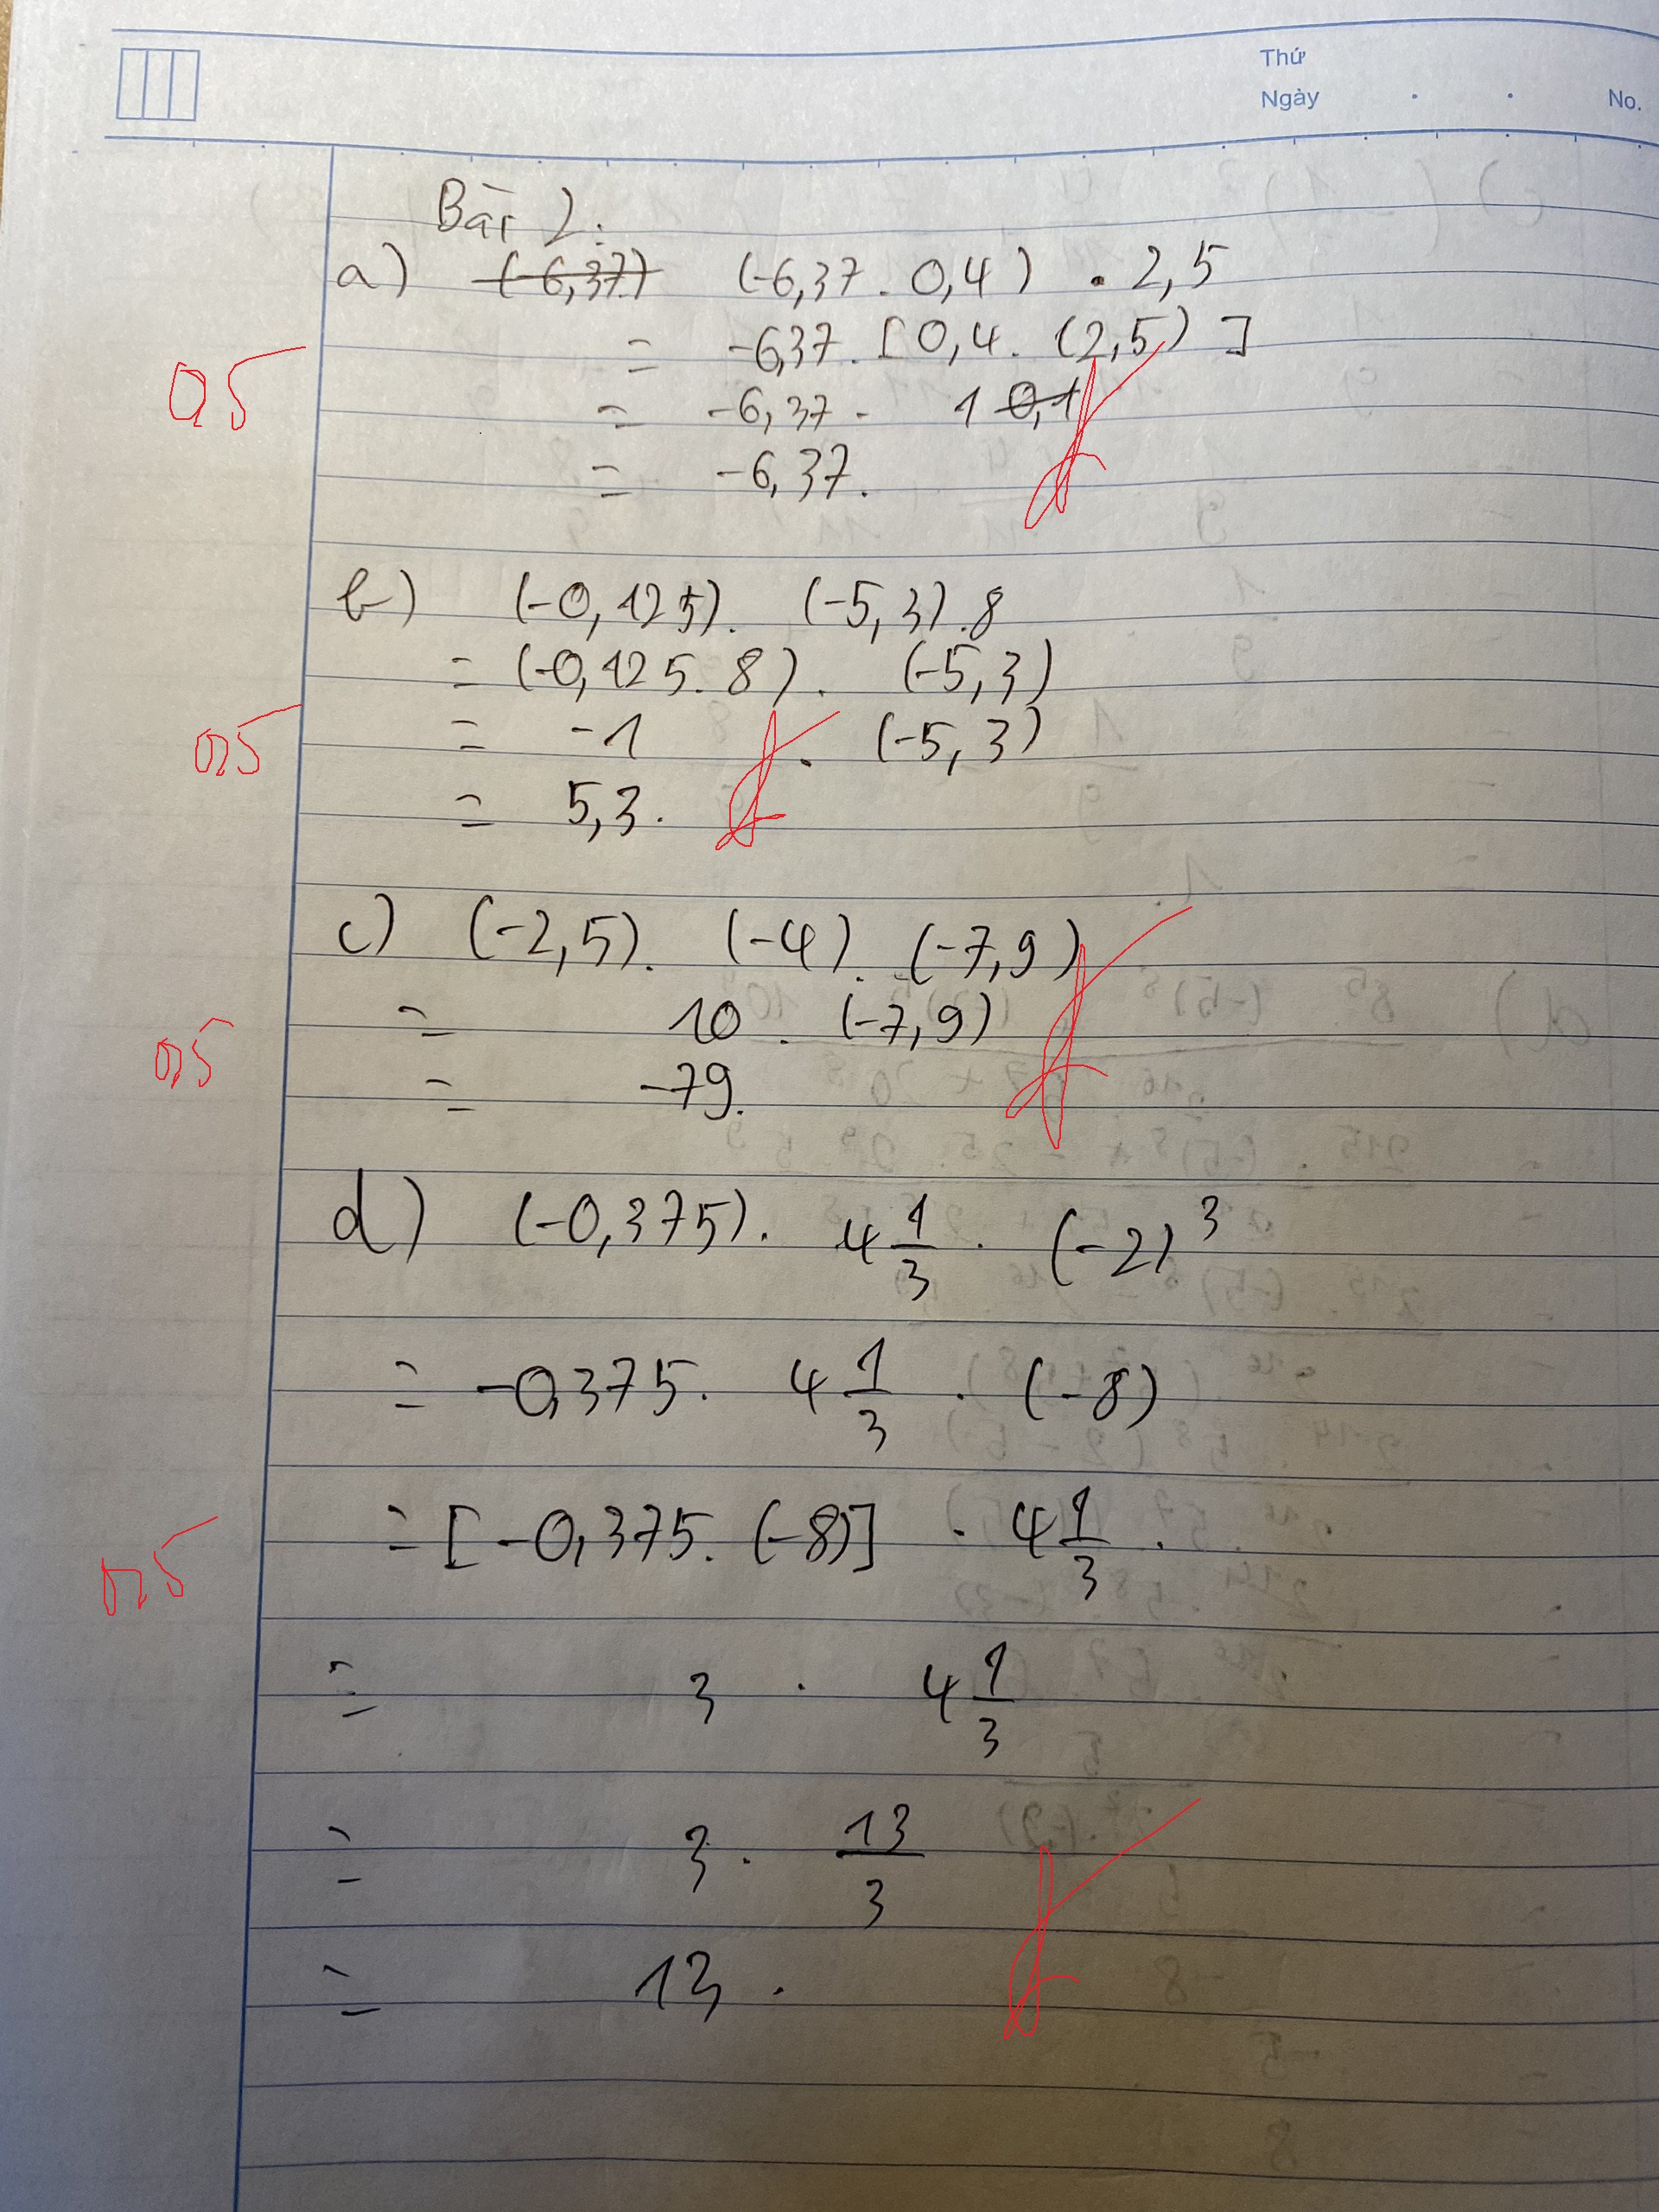 Thứ
Ngày . . No.
Bài 2:
a) (-6,37) (-6,37 . 0,4) . 2,5
= -6,37. [0,4. (2,5)]
0,5
= -6,37 . 1 0,1
= -6,37.
b) (-0,125). (-5,3).8
= (-0,125.8). (-5,3)
0,5
= -1 . (-5,3)
= 5,3.
c) (-2,5). (-4). (-7,9)
0,5
= 10 . (-7,9)
= -79.
d) (-0,375). 4 1/3 . (-2)³
= -0,375. 4 1/3 . (-8)
= [-0,375. (-8)] . 4 1/3 .
0,5
= 3 . 4 1/3
= 3 . 13/3
= 13 .